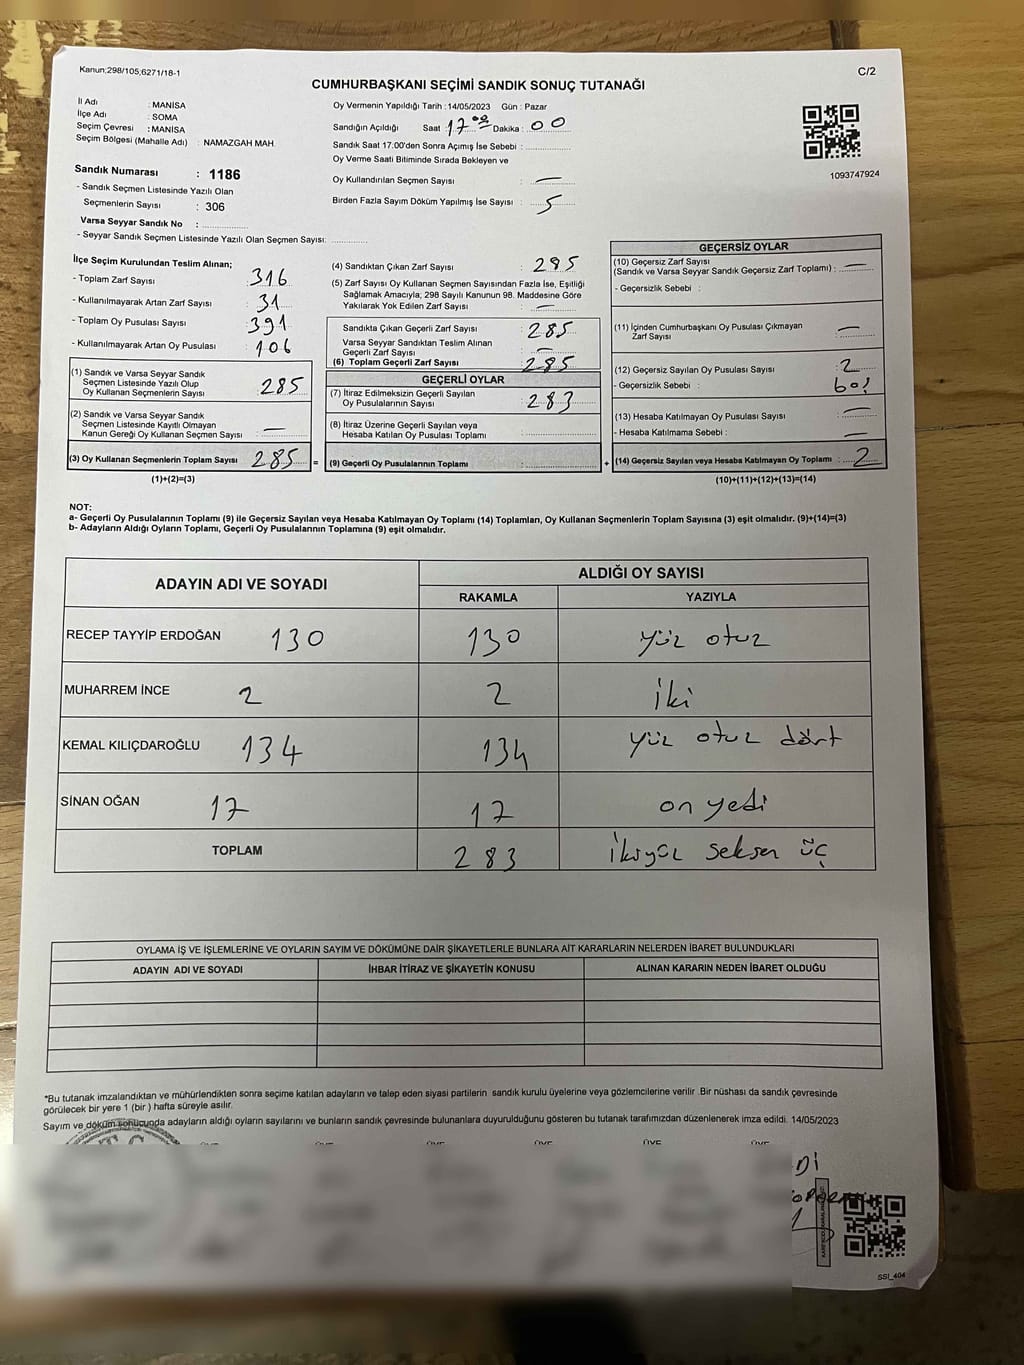 Kanun;298/105;6271/18-1
C/2
CUMHURBAŞKANI SEÇİMİ SANDIK SONUÇ TUTANAĞI
İl Adı : MANİSA
İlçe Adı : SOMA
Seçim Çevresi : MANİSA
Seçim Bölgesi (Mahalle Adı) : NAMAZGAH MAH.
Sandık Numarası : 1186
- Sandık Seçmen Listesinde Yazılı Olan
Seçmenlerin Sayısı : 306
Varsa Seyyar Sandık No :
- Seyyar Sandık Seçmen Listesinde Yazılı Olan Seçmen Sayısı:
Oy Vermenin Yapıldığı Tarih : 14/05/2023 Gün : Pazar
Sandığın Açıldığı Saat : 17.00 Dakika : 00
Sandık Saat 17.00'den Sonra Açımış İse Sebebi :
Oy Verme Saati Bitiminde Sırada Bekleyen ve
Oy Kullandırılan Seçmen Sayısı : —
Birden Fazla Sayım Döküm Yapılmış İse Sayısı : 5
1093747924
İlçe Seçim Kurulundan Teslim Alınan;
- Toplam Zarf Sayısı : 316
- Kullanılmayarak Artan Zarf Sayısı : 31
- Toplam Oy Pusulası Sayısı : 391
- Kullanılmayarak Artan Oy Pusulası : 106
(1) Sandık ve Varsa Seyyar Sandık
Seçmen Listesinde Yazılı Olup
Oy Kullanan Seçmenlerin Sayısı : 285
(2) Sandık ve Varsa Seyyar Sandık
Seçmen Listesinde Kayıtlı Olmayan
Kanun Gereği Oy Kullanan Seçmen Sayısı : —
(3) Oy Kullanan Seçmenlerin Toplam Sayısı : 285
(1)+(2)=(3)
(4) Sandıktan Çıkan Zarf Sayısı : 285
(5) Zarf Sayısı Oy Kullanan Seçmen Sayısından Fazla İse, Eşitliği
Sağlamak Amacıyla; 298 Sayılı Kanunun 98. Maddesine Göre
Yakılarak Yok Edilen Zarf Sayısı : —
Sandıkta Çıkan Geçerli Zarf Sayısı : 285
Varsa Seyyar Sandıktan Teslim Alınan
Geçerli Zarf Sayısı : —
(6) Toplam Geçerli Zarf Sayısı : 285
GEÇERLİ OYLAR
(7) İtiraz Edilmeksizin Geçerli Sayılan
Oy Pusulalarının Sayısı : 283
(8) İtiraz Üzerine Geçerli Sayılan veya
Hesaba Katılan Oy Pusulası Toplamı :
= (9) Geçerli Oy Pusulalarının Toplamı :
GEÇERSİZ OYLAR
(10) Geçersiz Zarf Sayısı
(Sandık ve Varsa Seyyar Sandık Geçersiz Zarf Toplamı) : —
- Geçersizlik Sebebi :
(11) İçinden Cumhurbaşkanı Oy Pusulası Çıkmayan
Zarf Sayısı : —
(12) Geçersiz Sayılan Oy Pusulası Sayısı : 2
- Geçersizlik Sebebi :
(13) Hesaba Katılmayan Oy Pusulası Sayısı : —
- Hesaba Katılmama Sebebi : —
+ (14) Geçersiz Sayılan veya Hesaba Katılmayan Oy Toplamı : 2
(10)+(11)+(12)+(13)=(14)
NOT:
a- Geçerli Oy Pusulalarının Toplamı (9) ile Geçersiz Sayılan veya Hesaba Katılmayan Oy Toplamı (14) Toplamları, Oy Kullanan Seçmenlerin Toplam Sayısına (3) eşit olmalıdır. (9)+(14)=(3)
b- Adayların Aldığı Oyların Toplamı, Geçerli Oy Pusulalarının Toplamına (9) eşit olmalıdır.
ADAYIN ADI VE SOYADI
ALDIĞI OY SAYISI
RAKAMLA YAZIYLA
RECEP TAYYİP ERDOĞAN 130 130 yüz otuz
MUHARREM İNCE 2 2 iki
KEMAL KILIÇDAROĞLU 134 134 yüz otuz dört
SİNAN OĞAN 17 17 on yedi
TOPLAM 283 ikiyüz seksen üç
OYLAMA İŞ VE İŞLEMLERİNE VE OYLARIN SAYIM VE DÖKÜMÜNE DAİR ŞİKAYETLERLE BUNLARA AİT KARARLARIN NELERDEN İBARET BULUNDUKLARI
ADAYIN ADI VE SOYADI İHBAR İTİRAZ VE ŞİKAYETİN KONUSU ALINAN KARARIN NEDEN İBARET OLDUĞU
*Bu tutanak imzalandıktan ve mühürlendikten sonra seçime katılan adayların ve talep eden siyasi partilerin sandık kurulu üyelerine veya gözlemcilerine verilir .Bir nüshası da sandık çevresinde
görülecek bir yere 1 (bir ) hafta süreyle asılır.
Sayım ve döküm sonucunda adayların aldığı oyların sayılarını ve bunların sandık çevresinde bulunanlara duyurulduğunu gösteren bu tutanak tarafımızdan düzenlenerek imza edildi. 14/05/2023
ÜYE ÜYE ÜYE ÜYE ÜYE
SSI_404